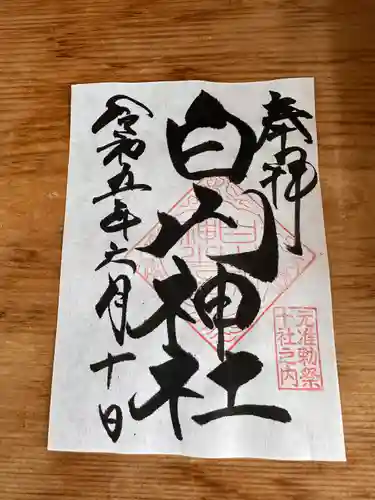 奉拝
白山神社
元准勅祭
十社之内
令和五年六月十日